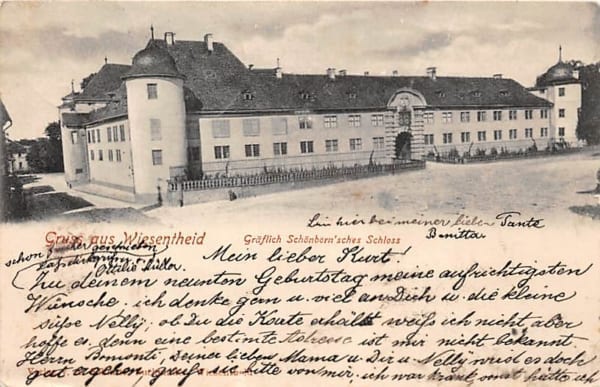 Bin hier bei meiner lieben Tante
Benitta
Gruss aus Wiesentheid
Gräflich Schönborn'sches Schloss
schon
Mein lieber Kurt!
Zu deinem neunten Geburtstag meine aufrichtigsten
Wünsche. ich denke gern u. viel an Dich u. die kleine
süße Nelly, ob Du die Karte erhältst weiß ich nicht aber
hoffe es. denn eine bestimmte Adresse ist mir nicht bekannt.
Herrn Bomonti, Deiner lieben Mama u Dir u Nelly wird es doch
gut ergehen, grüße sie bitte von mir, ich war krank, muß